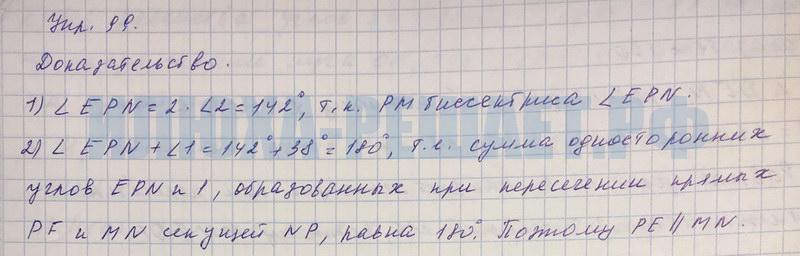 Упр. 99.
Доказательство.
1) ∠EPN = 2 · ∠2 = 142°, т.к. PM биссектриса ∠EPN.
2) ∠EPN + ∠1 = 142° + 38° = 180°, т.е. сумма односторонних
углов EPN и 1, образованных при пересечении прямых
PE и MN секущей NP, равна 180°. Поэтому PE || MN.